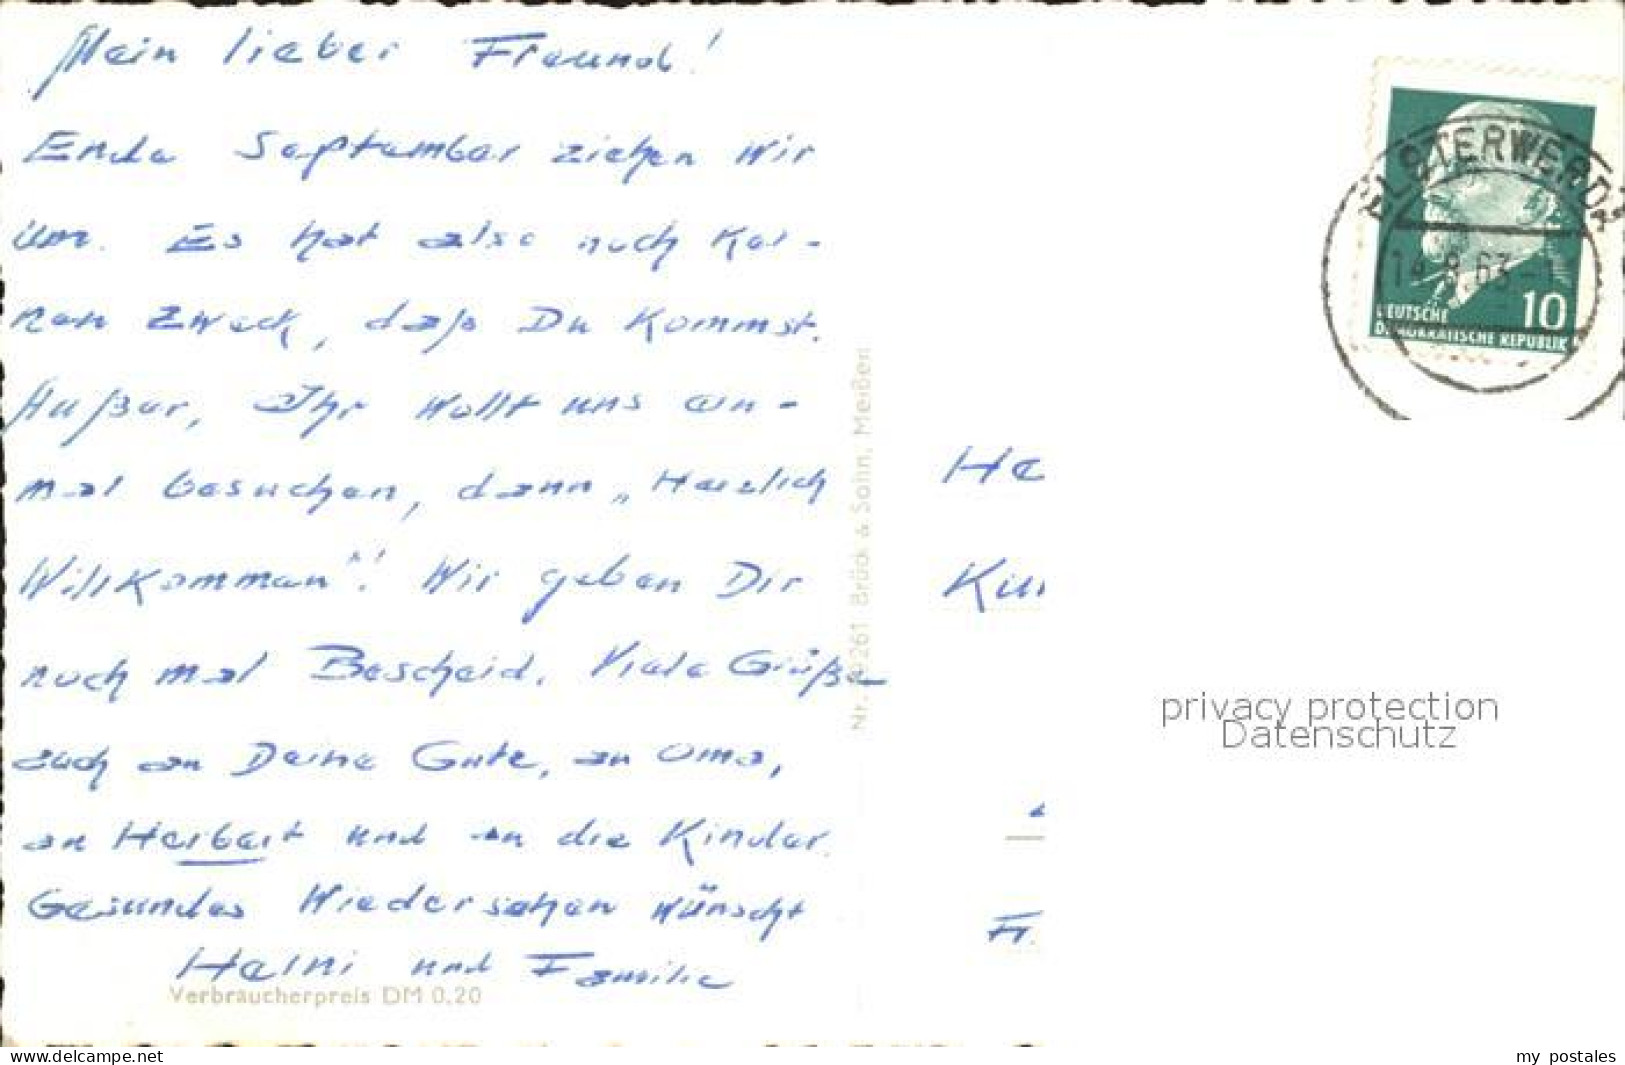 Mein lieber Freund!
Ende September ziehen wir
um. Es hat also noch kei-
nen Zweck, daß Du kommst.
Außer, Ihr wollt uns ein-
mal besuchen, dann „Herzlich
Willkommen"! Wir geben Dir
noch mal Bescheid. Viele Grüße
auch an Deine Gute, an Oma,
an Herbert und an die Kinder.
Gesundes Wiedersehen wünscht
Heini und Familie
Verbraucherpreis DM 0,20
Brück & Sohn, Meißen
ELSTERWERDA
14.8.63-1
10
DEUTSCHE
DEMOKRATISCHE REPUBLIK
He
Fr.
privacy protection
Datenschutz
oldthing.de
my postales